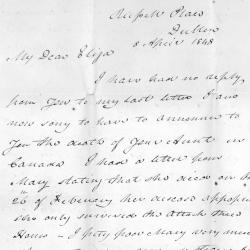 Place
Dublin
8 April 1848
My Dear Eliza
I have had no reply
from you to my last letter I am
now sorry to have to announce to
you the death of your Aunt in
Canada I had a letter from
Mary stating that she died on the
26 of February her disease
she only survived the attack three
Hours – I pity poor Mary very much